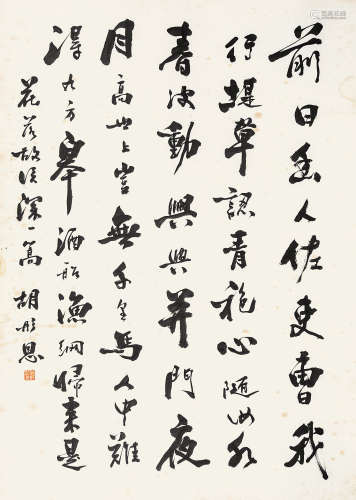 前日幽人佐吏曹我
行堤草認青袍心隨汝水
春波動興與并門夜
月高世上豈無千里馬人中難
得九方皋酒船漁網歸來是
花落故溪深一篙 胡彤恩